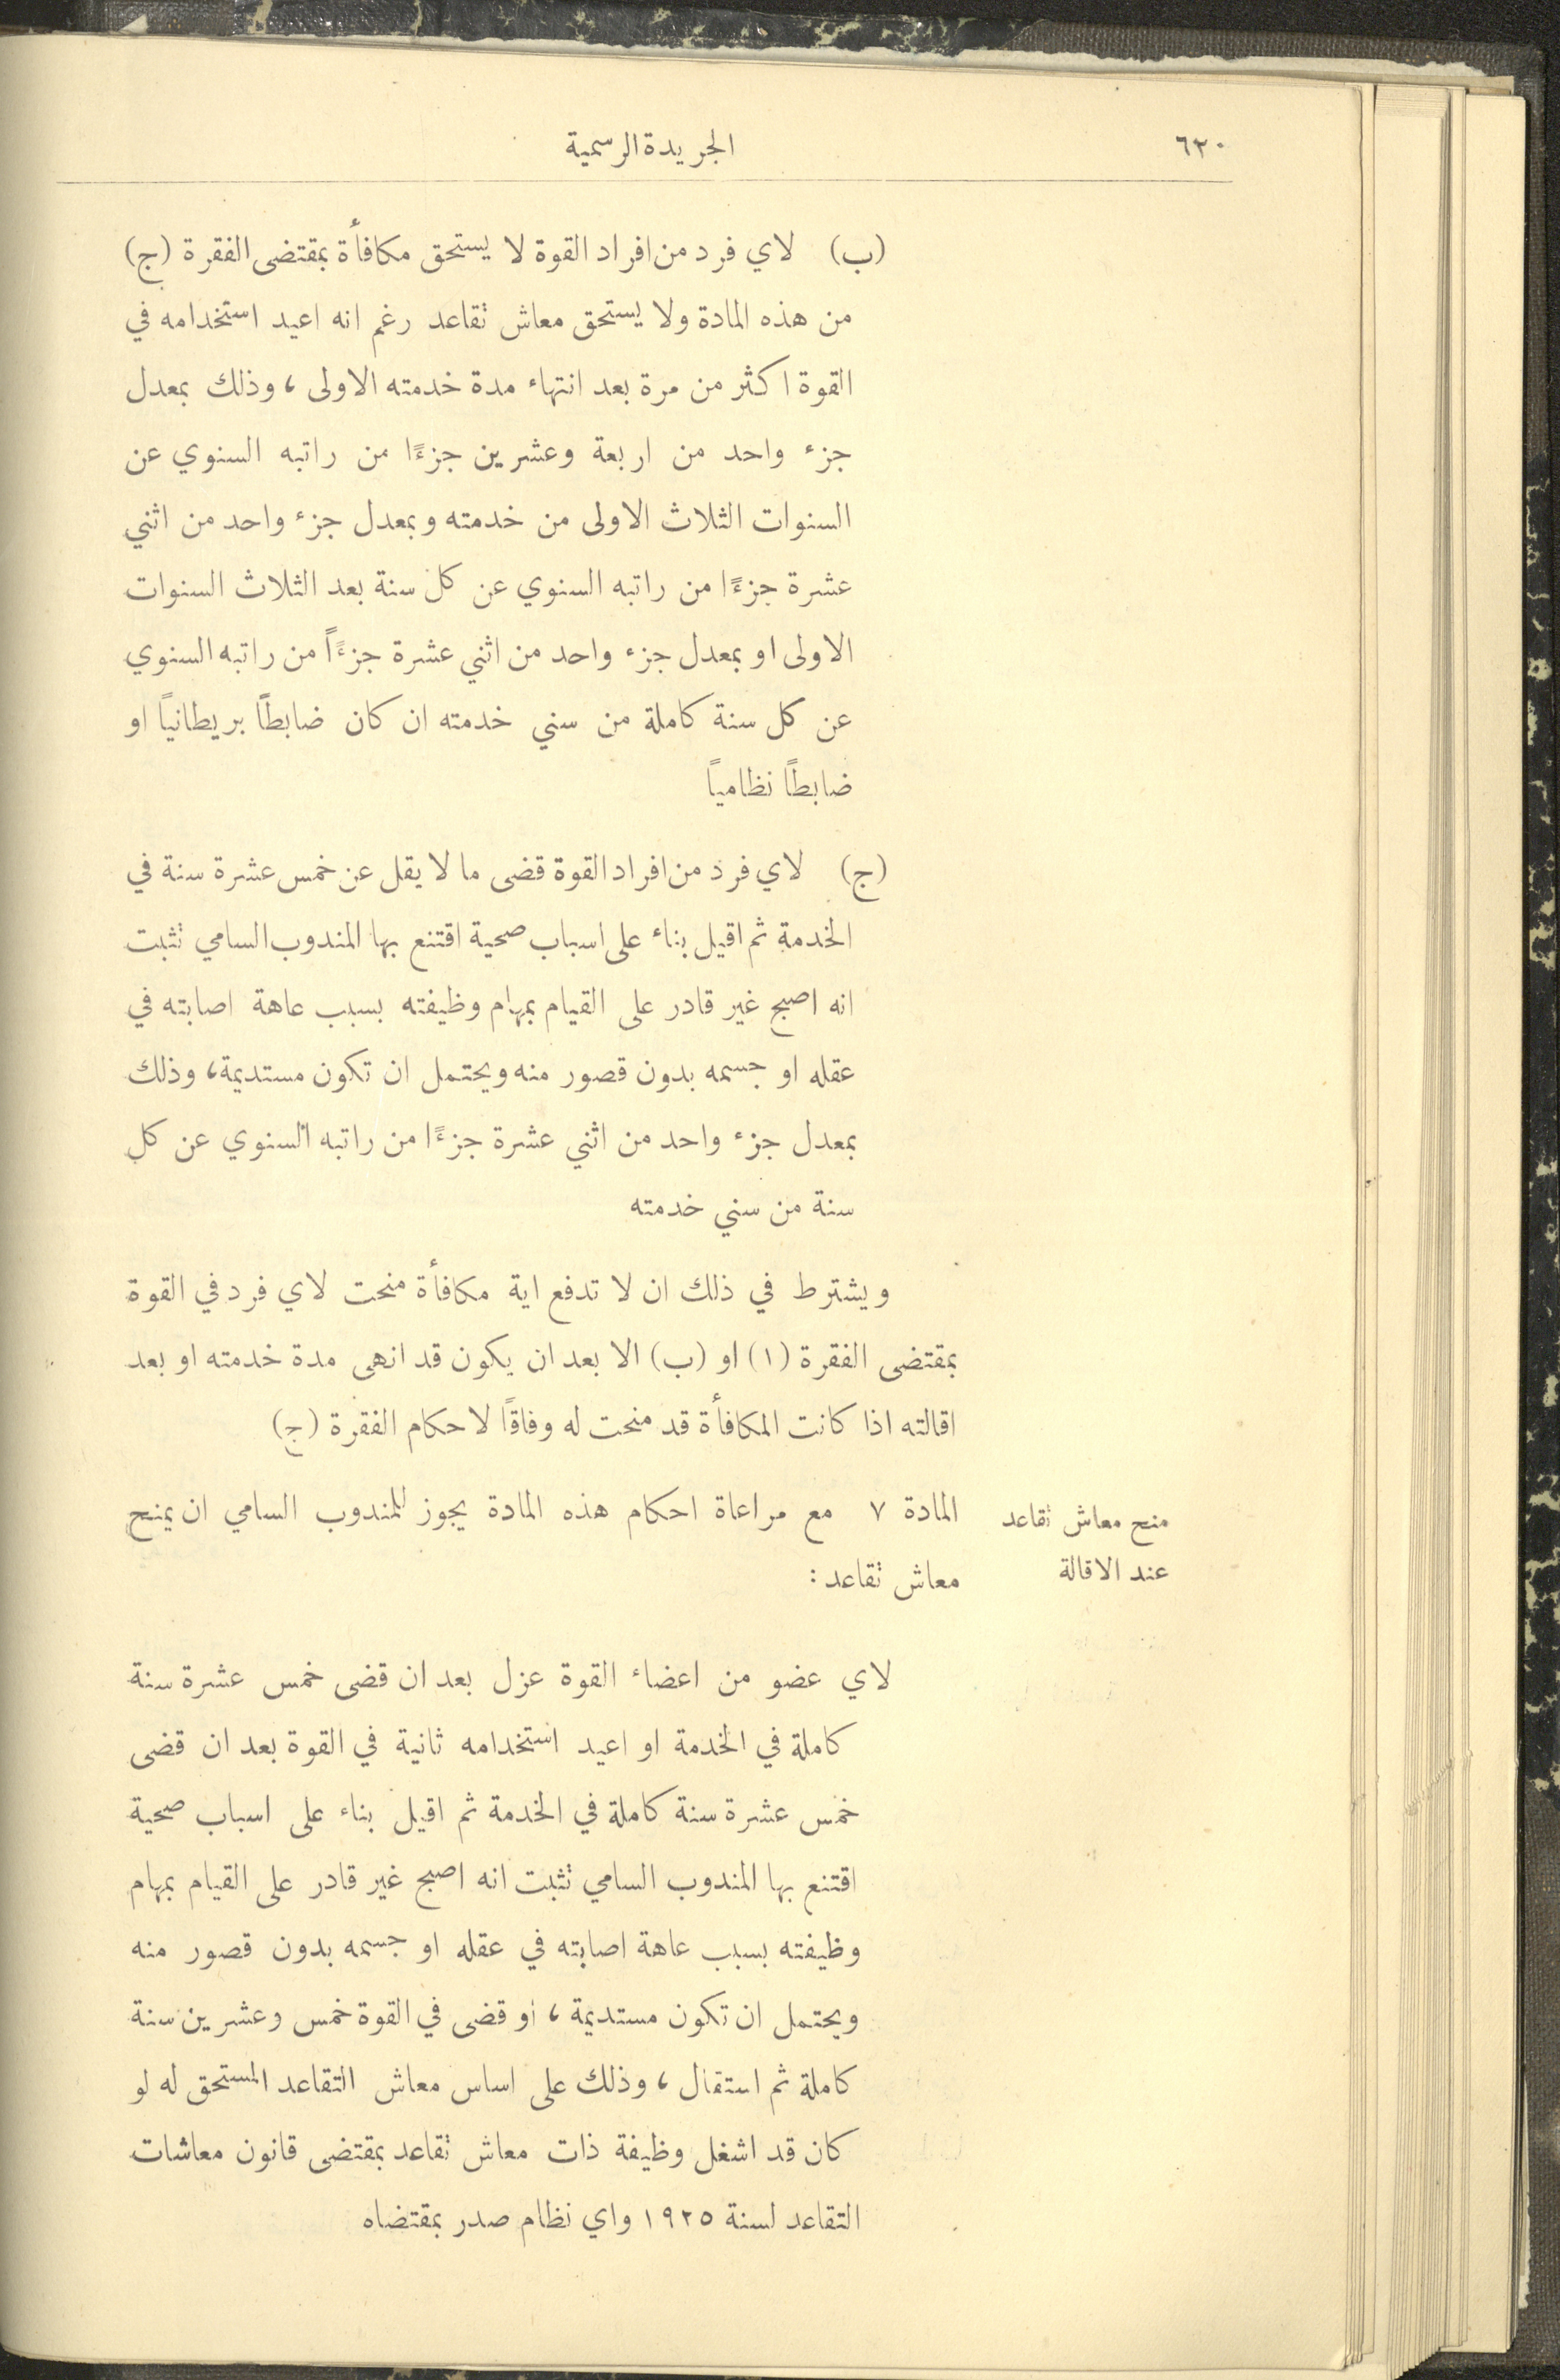 ٦٣٠
الجريدة الرسمية
(ب) لاي فرد من افراد القوة لا يستحق مكافأة بمقتضى الفقرة (ج)
من هذه المادة ولا يستحق معاش تقاعد رغم انه اعيد استخدامه في
القوة اكثر من مرة بعد انتهاء مدة خدمته الاولى ، وذلك بمعدل
جزء واحد من اربعة وعشرين جزءًا من راتبه السنوي عن
السنوات الثلاث الاولى من خدمته وبمعدل جزء واحد من اثني
عشرة جزءًا من راتبه السنوي عن كل سنة بعد الثلاث السنوات
الاولى او بمعدل جزء واحد من اثني عشرة جزءًا من راتبه السنوي
عن كل سنة كاملة من سني خدمته ان كان ضابطاً بريطانياً او
ضابطاً نظامياً
(ج) لاي فرد من افراد القوة قضى ما لا يقل عن خمس عشرة سنة في
الخدمة ثم اقيل بناء على اسباب صحية اقتنع بها المندوب السامي تثبت
انه اصبح غير قادر على القيام بمهام وظيفته بسبب عاهة اصابته في
عقله او جسمه بدون قصور منه ويحتمل ان تكون مستديمة ، وذلك
بمعدل جزء واحد من اثني عشرة جزءًا من راتبه السنوي عن كل
سنة من سني خدمته
ويشترط في ذلك ان لا تدفع اية مكافأة منحت لاي فرد في القوة
بمقتضى الفقرة (ا) او (ب) الا بعد ان يكون قد انهى مدة خدمته او بعد
اقالته اذا كانت المكافأة قد منحت له وفاقاً لاحكام الفقرة (ج)
منح معاش تقاعد
عند الاقالة
المادة ٧ مع مراعاة احكام هذه المادة يجوز للمندوب السامي ان يمنح
معاش تقاعد :
لاي عضو من اعضاء القوة عزل بعد ان قضى خمس عشرة سنة
كاملة في الخدمة او اعيد استخدامه ثانية في القوة بعد ان قضى
خمس عشرة سنة كاملة في الخدمة ثم اقيل بناء على اسباب صحية
اقتنع بها المندوب السامي تثبت انه اصبح غير قادر على القيام بمهام
وظيفته بسبب عاهة اصابته في عقله او جسمه بدون قصور منه
ويحتمل ان تكون مستديمة ، او قضى في القوة خمس وعشرين سنة
كاملة ثم استقال ، وذلك على اساس معاش التقاعد المستحق له لو
كان قد اشغل وظيفة ذات معاش تقاعد بمقتضى قانون معاشات
التقاعد لسنة ١٩٢٥ واي نظام صدر بمقتضاه